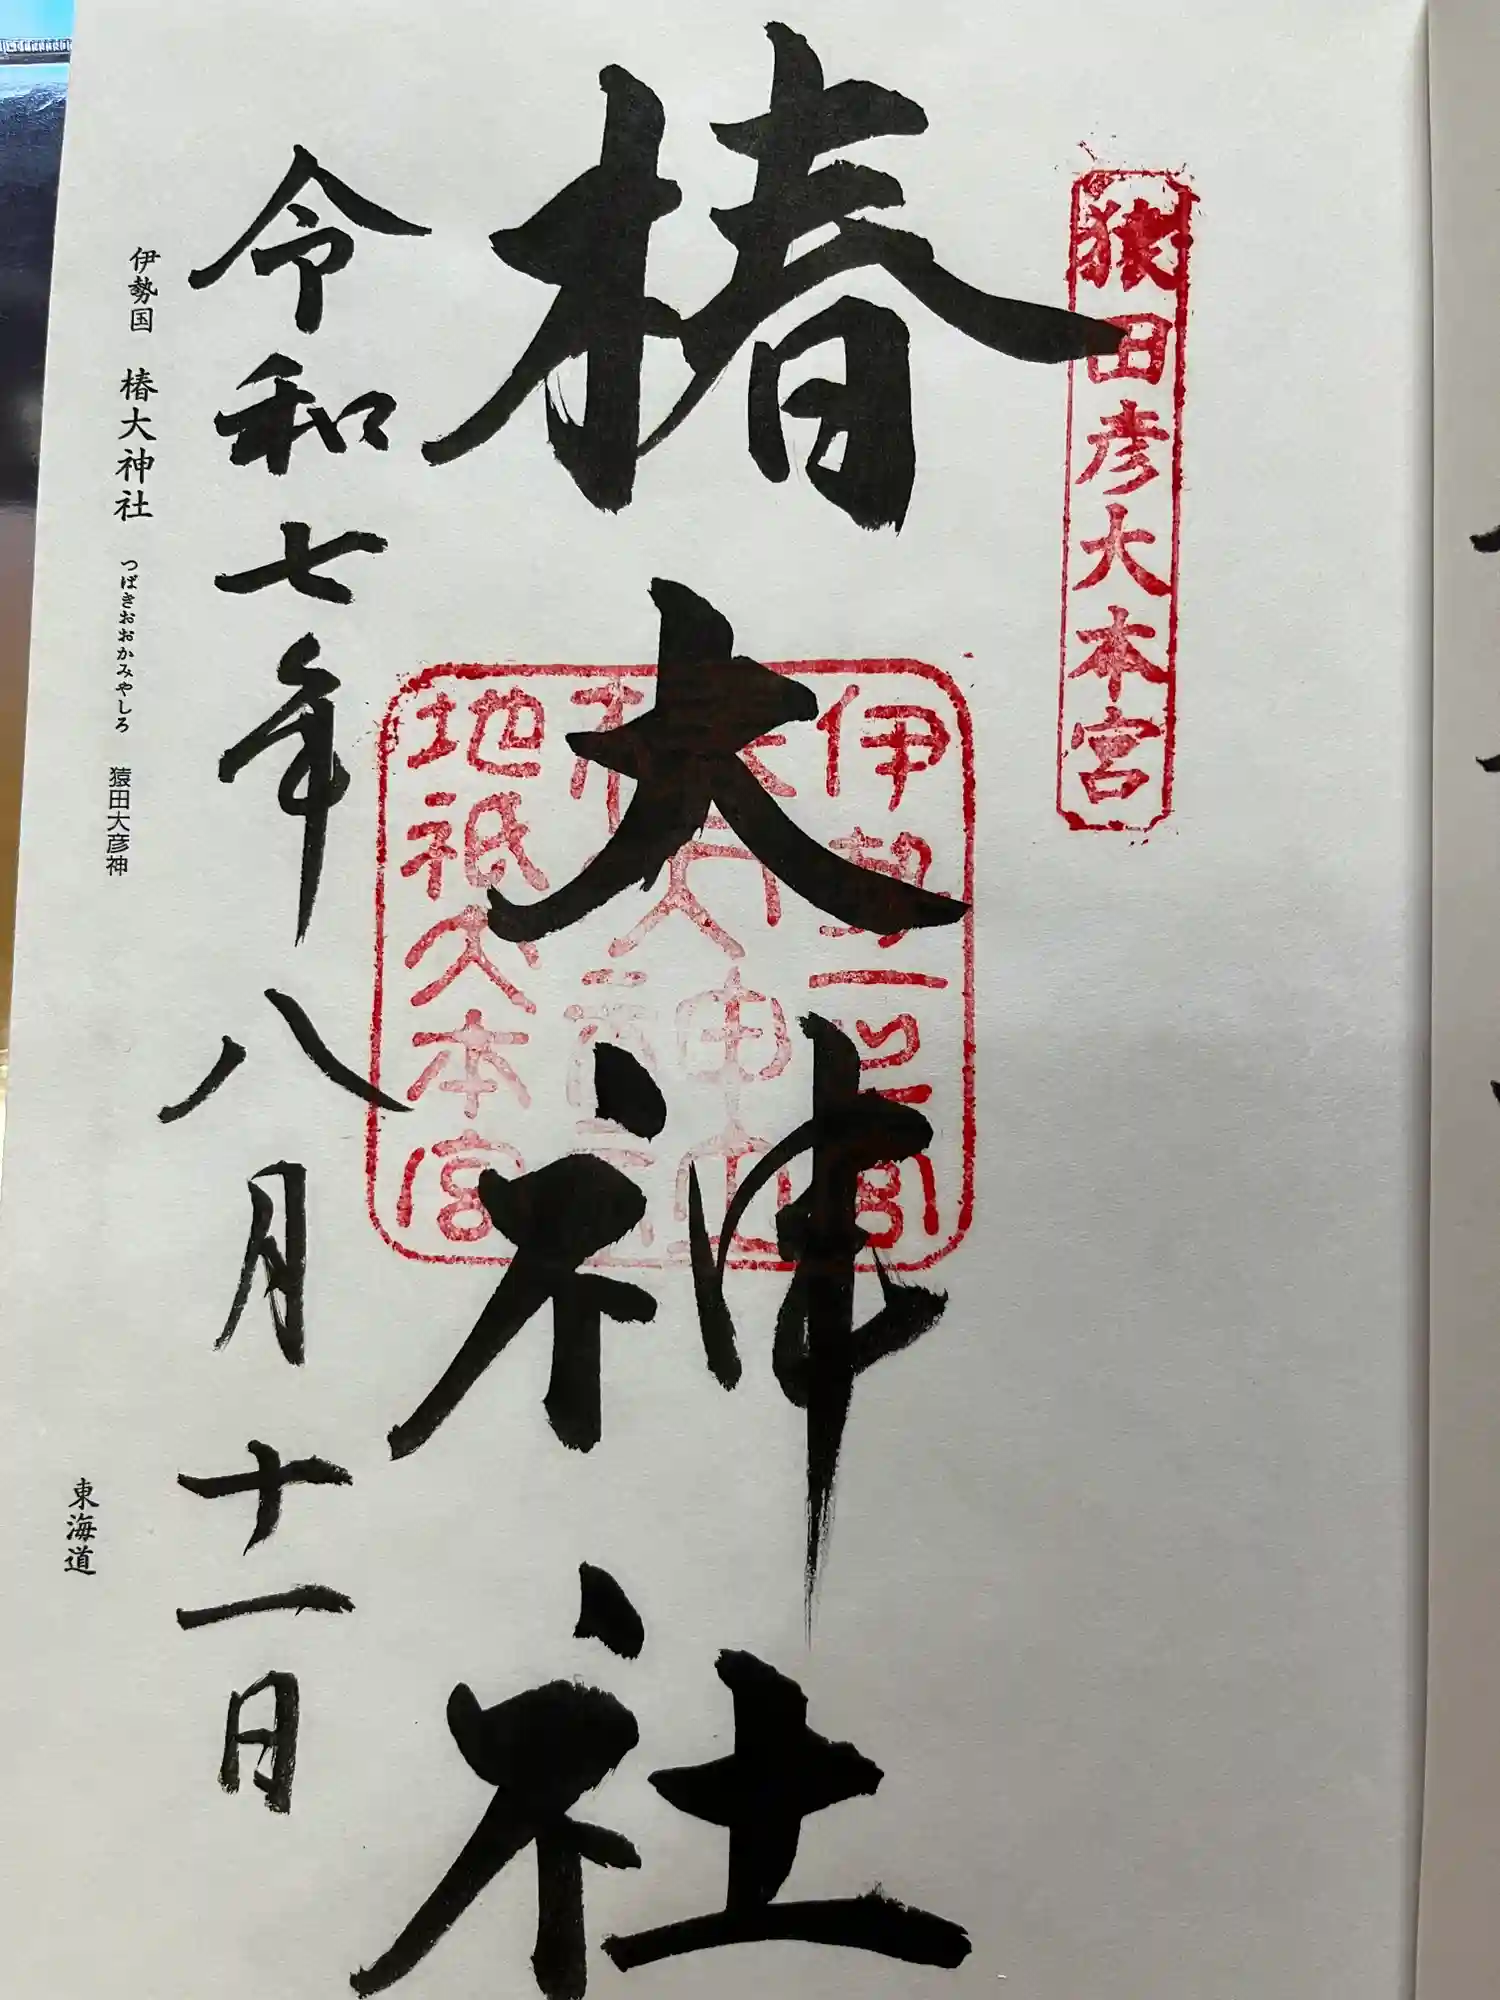 猿田彦大本宮
椿大神社
伊勢一之宮
地祇大本宮
令和七年八月十一日
伊勢国 椿大神社 つばきおおかみやしろ 猿田大彦神
東海道